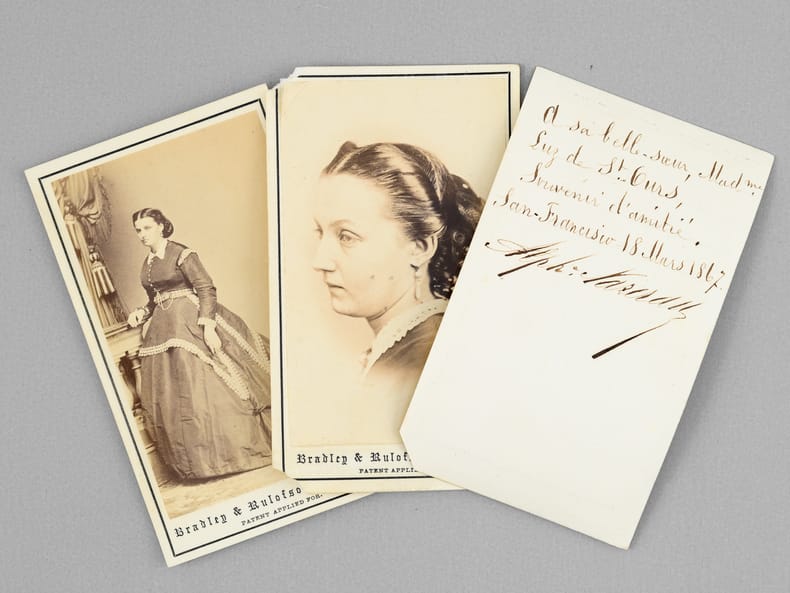 Bradley & Rulofso
PATENT APPLIED FOR.
Bradley & Rulof
PATENT APPLI
A sa belle-sœur, Madme
Luz de St. Ours,
Souvenir d'amitié.
San-Francisco 18 Mars 1867.